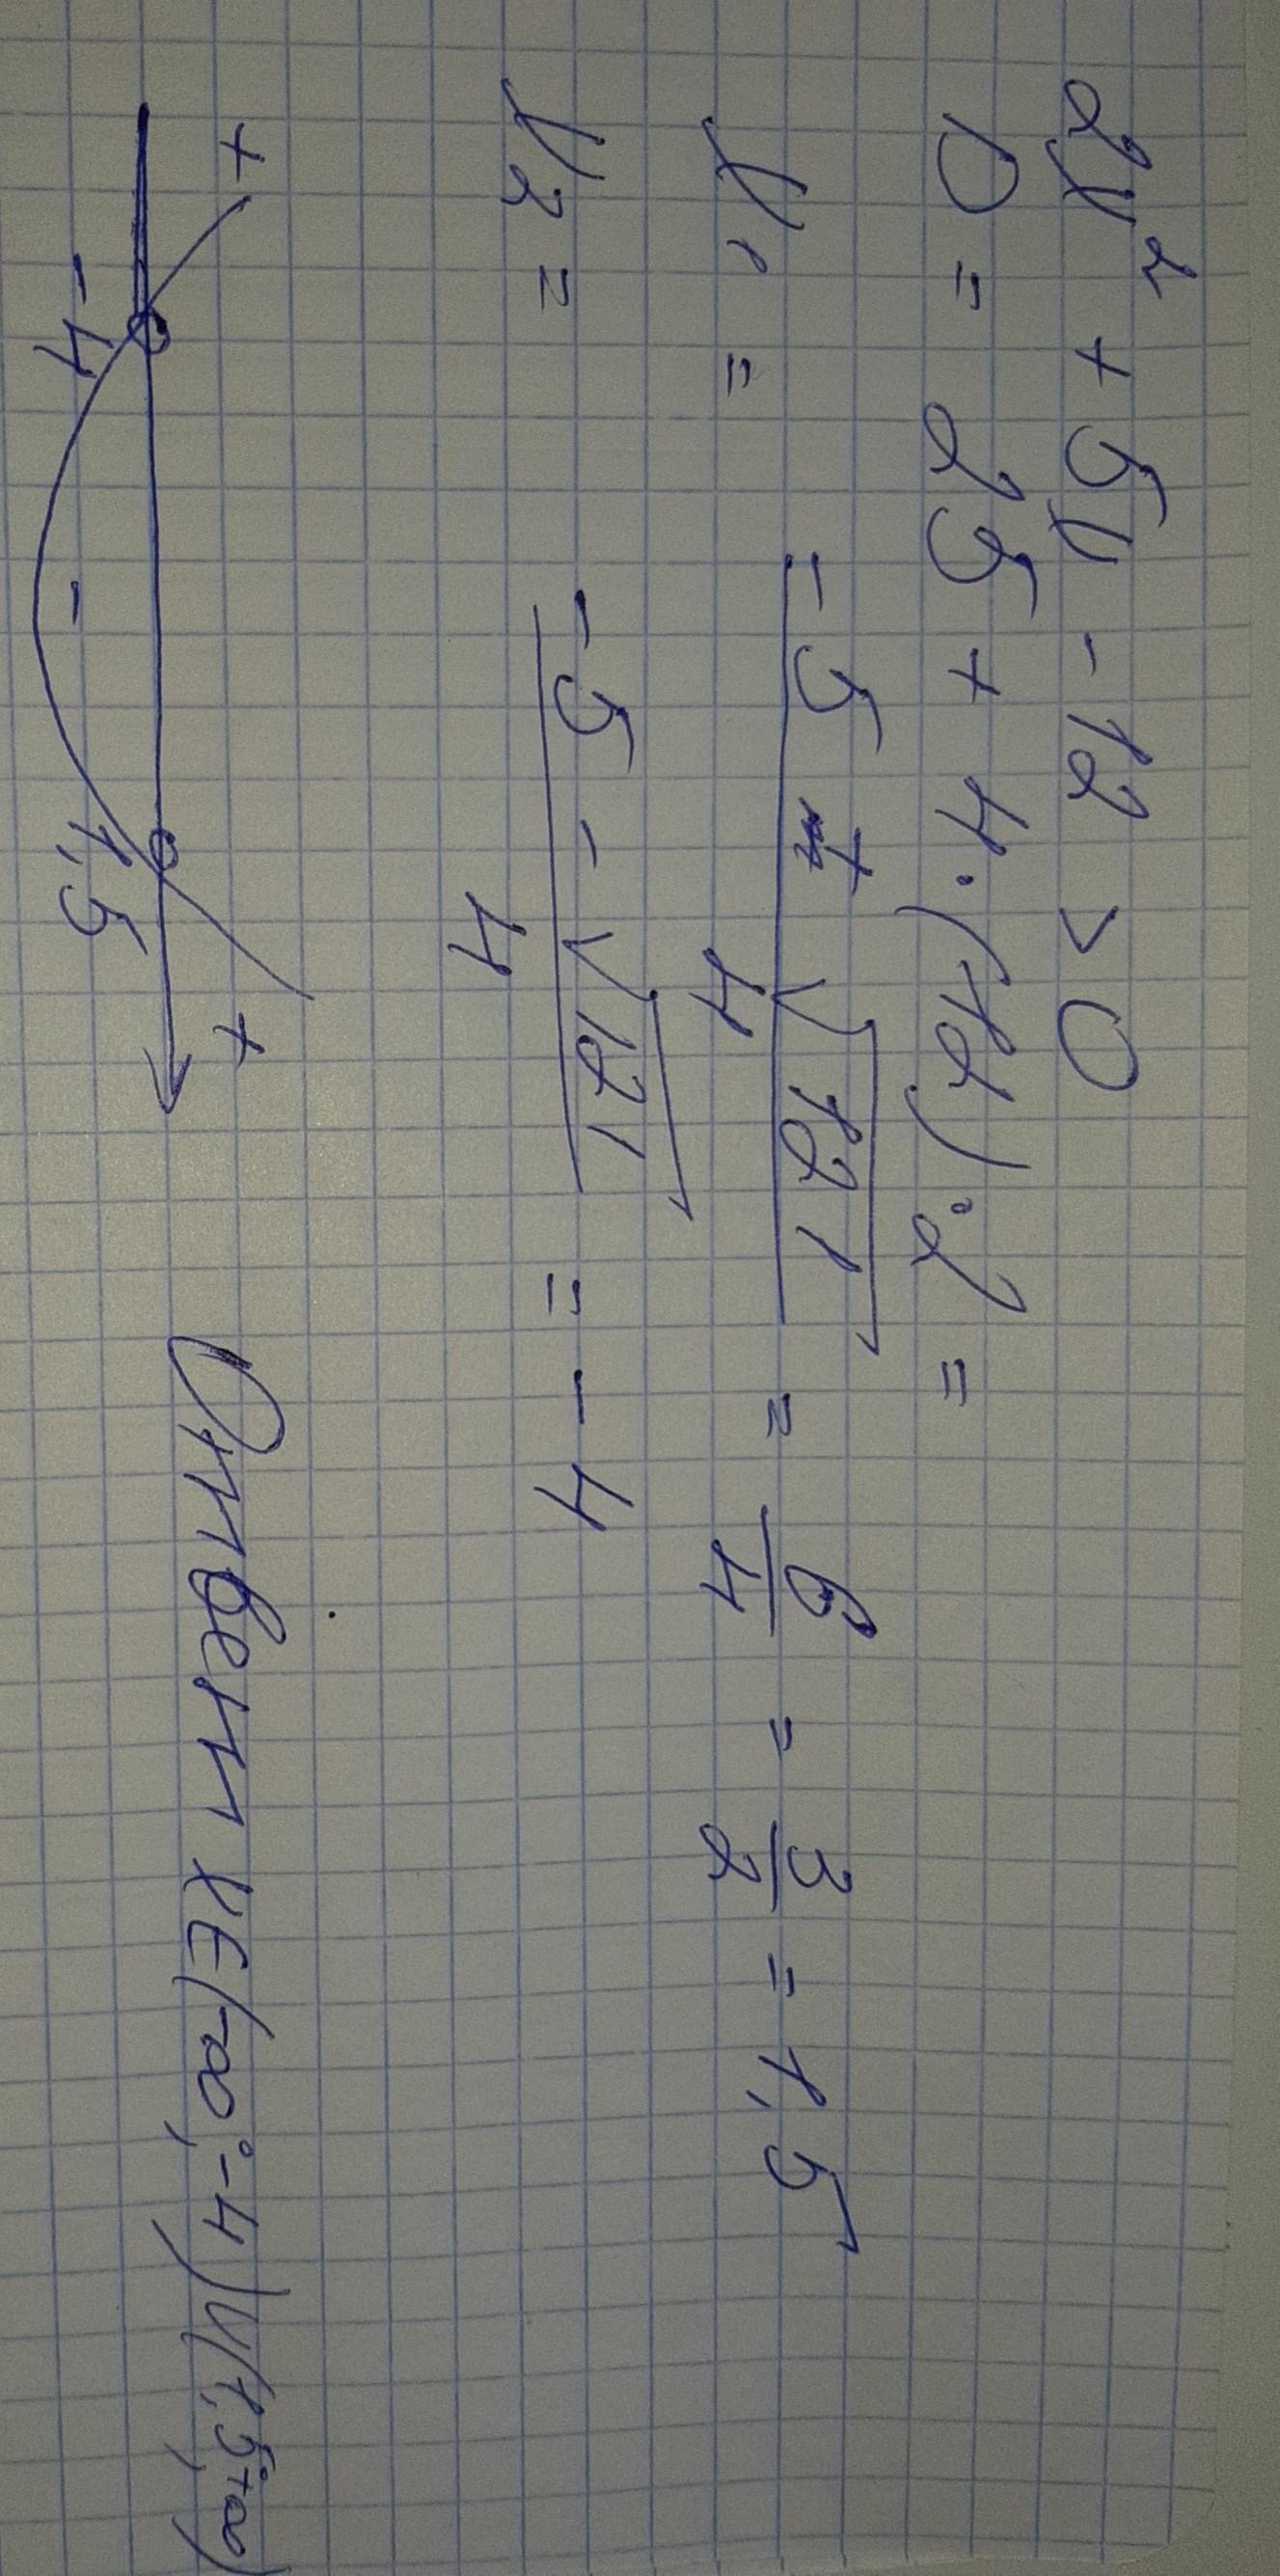 2x² + 5x - 12 > 0
D = 25 + 4·(12)·2 =
x₁ = -5 + √121 / 4 = 6/4 = 3/2 = 1,5
x₂ = -5 - √121 / 4 = -4
+ - +
-4 1,5
Ответ x∈(-∞;-4)∪(1,5;+∞)